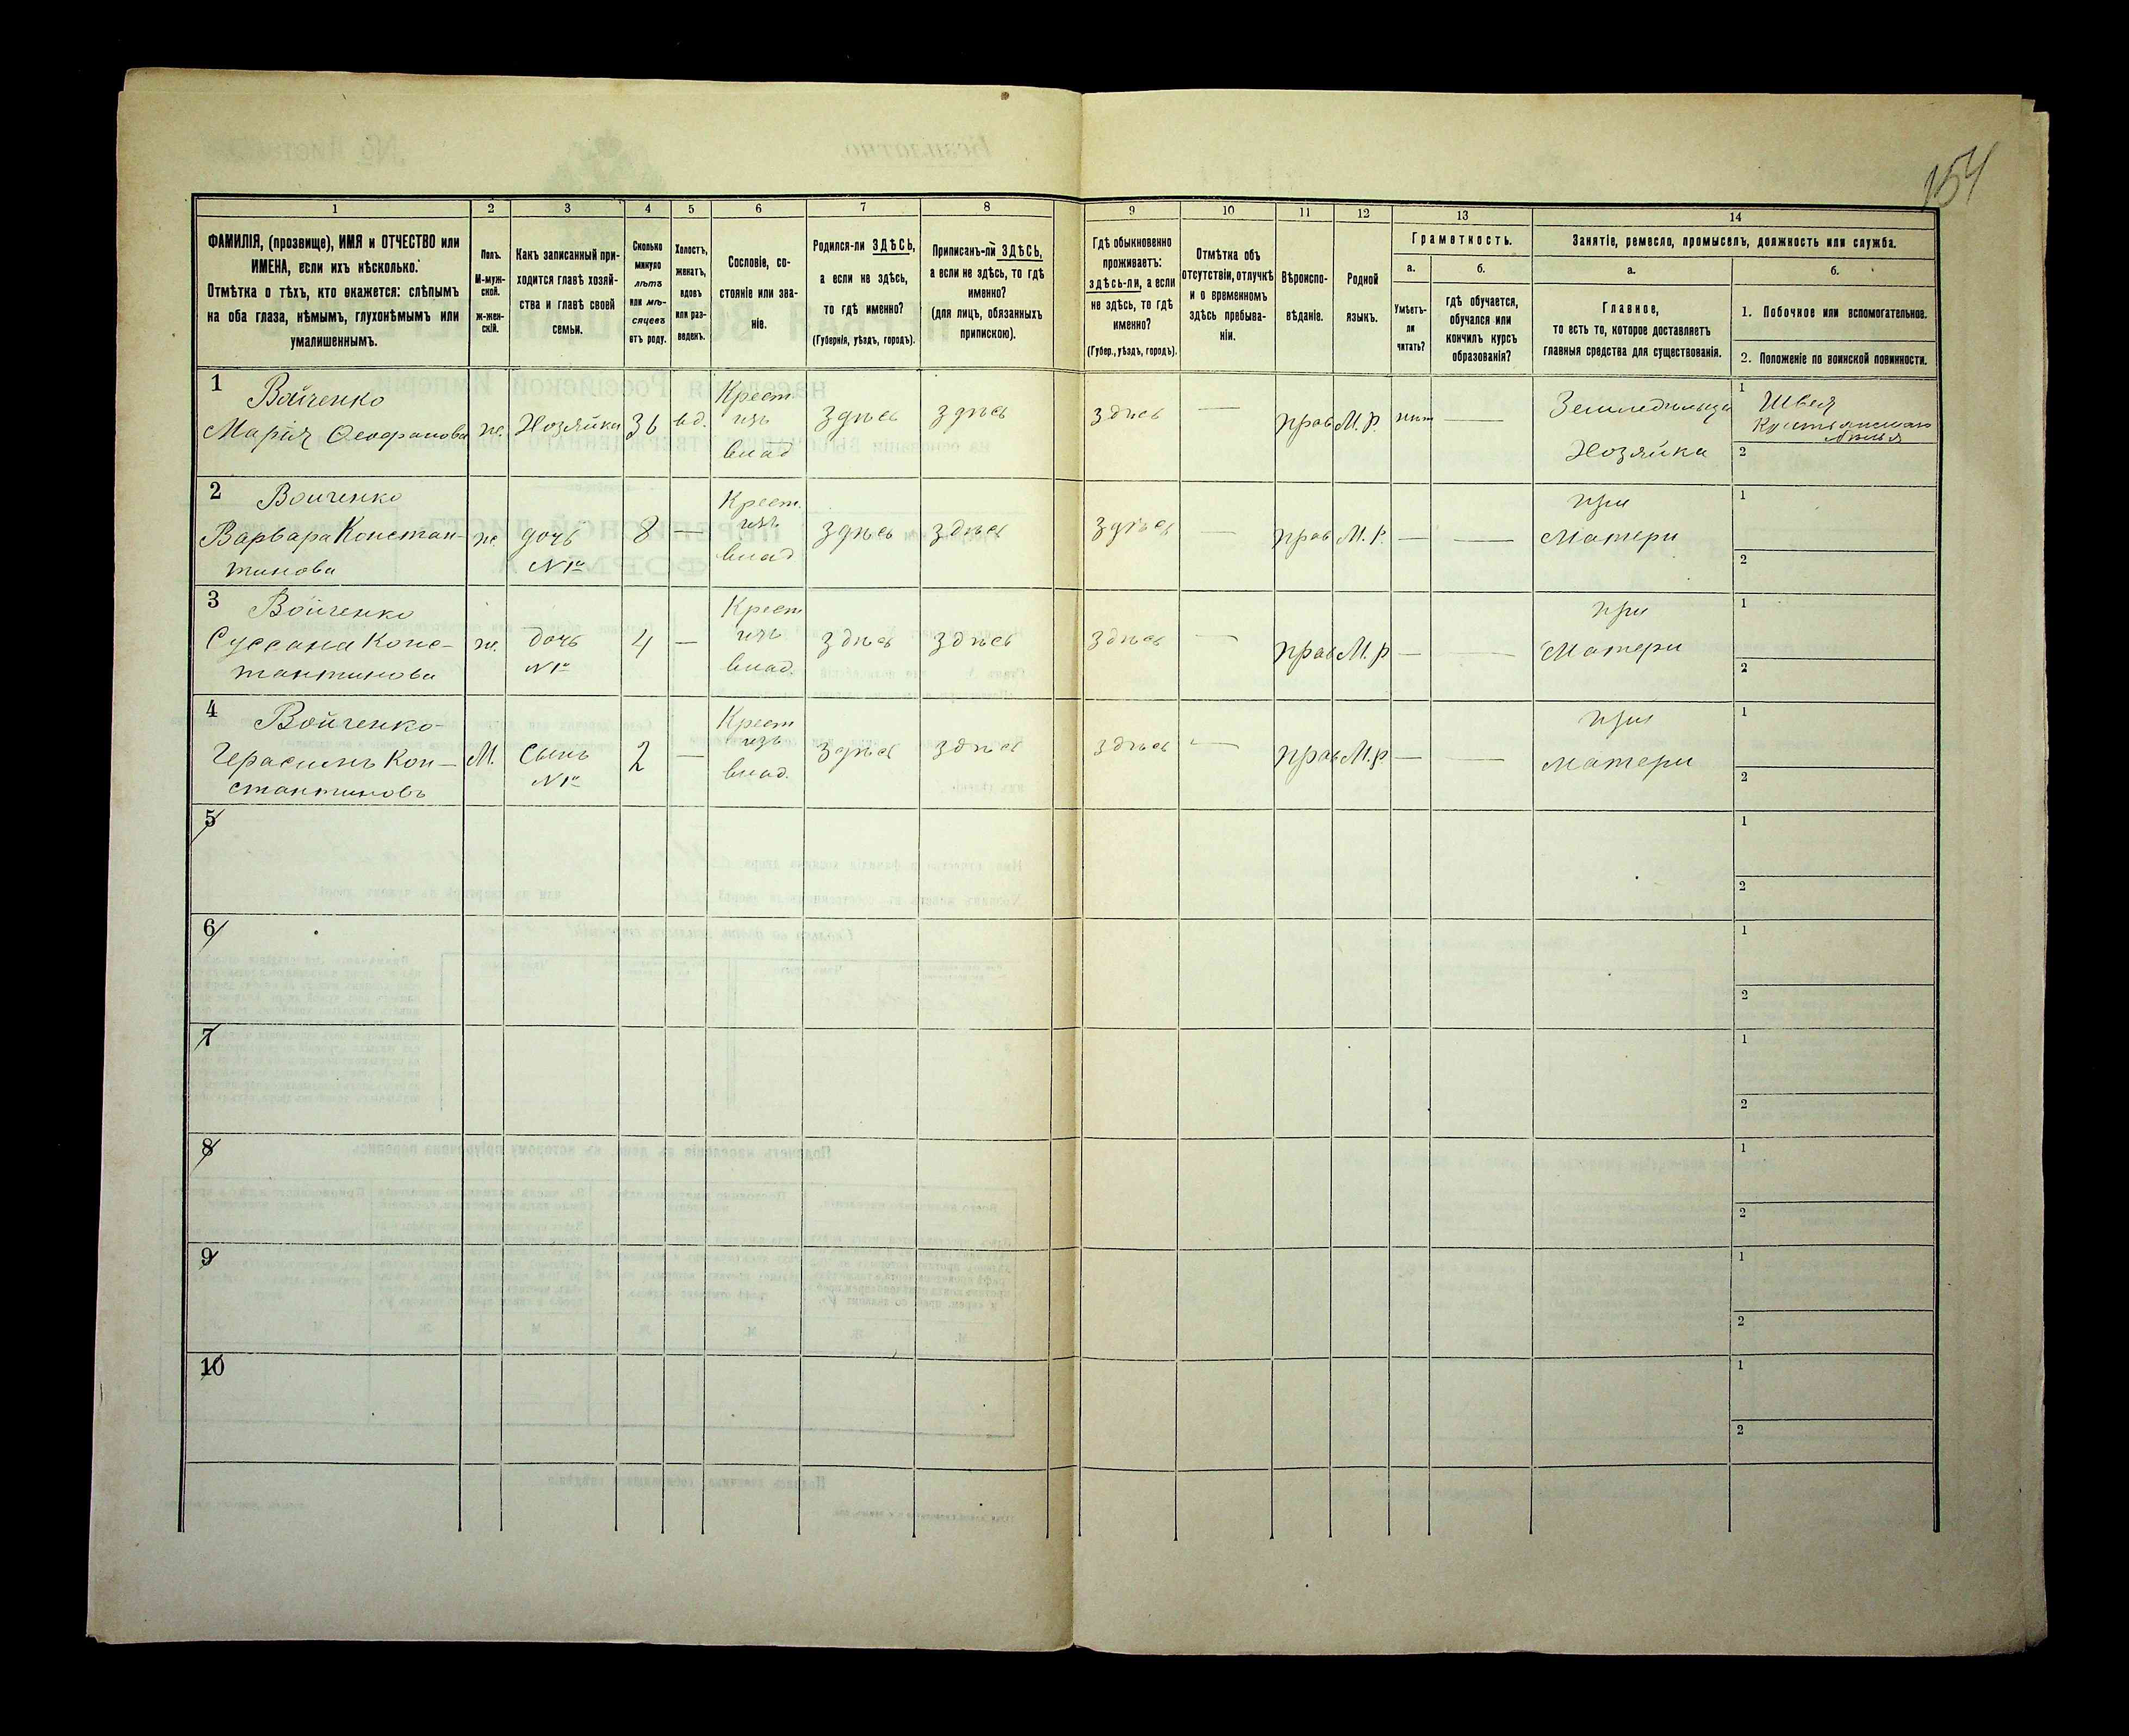 154
1 2 3 4 5 6 7 8 9 10 11 12 13 14
ФАМИЛІЯ, (прозвище), ИМЯ и ОТЧЕСТВО или
ИМЕНА, если ихъ нѣсколько.
Отмѣтка о тѣхъ, кто окажется: слѣпымъ
на оба глаза, нѣмымъ, глухонѣмымъ или
умалишеннымъ.
Полъ.
М-муж-
ской.
ж-жен-
скій.
Какъ записанный при-
ходится главѣ хозяй-
ства и главѣ своей
семьи.
Сколько
минуло
лѣтъ
или мѣ-
сяцевъ
отъ роду.
Холостъ,
женатъ,
вдовъ
или раз-
веденъ.
Сословіе, со-
стояніе или зва-
ніе.
Родился-ли ЗДѢСЬ,
а если не здѣсь,
то гдѣ именно?
(Губернія, уѣздъ, городъ).
Приписанъ-ли ЗДѢСЬ,
а если не здѣсь, то гдѣ
именно?
(для лицъ, обязанныхъ
припискою).
Гдѣ обыкновенно
проживаетъ:
здѣсь-ли, а если
не здѣсь, то гдѣ
именно?
(Губер., уѣздъ, городъ).
Отмѣтка объ
отсутствіи, отлучкѣ
и о временномъ
здѣсь пребыва-
ніи.
Вѣроиспо-
вѣданіе.
Родной
языкъ.
Грамотность.
а.
Умѣетъ-
ли
читать?
б.
гдѣ обучается,
обучался или
кончилъ курсъ
образованія?
Занятіе, ремесло, промыселъ, должность или служба.
а.
Главное,
то есть то, которое доставляетъ
главныя средства для существованія.
б.
1. Побочное или вспомогательное.
2. Положеніе по воинской повинности.
1 Войченко
Марія Ѳеофанова
ж.
Хозяйка
36
вд.
Крест
изъ
влад
здѣсь
здѣсь
здѣсь
—
прав
М. Р.
нѣт
—
Земледѣлица
Хозяйка
1 Швея
2
2 Войченко
Варвара Констан-
тинова
ж.
дочь
№ 1й
8
—
Крест.
изъ
влад
здѣсь
здѣсь
здѣсь
—
прав
М. Р.
—
—
при
Матери
1
2
3 Войченко
Суссана Конс-
тантинова
ж.
дочь
№ 1й
4
—
Крест
изъ
влад.
здѣсь
здѣсь
здѣсь
—
прав
М. р
—
—
при
Матери
1
2
4 Войченко
Герасимъ Кон-
стантиновъ
М.
Сынъ
№ 1й
2
—
Крест
изъ
влад.
здѣсь
здѣсь
здѣсь
—
прав
М. р
—
—
при
матери
1
2
5
1
2
6
1
2
7
1
2
8
1
2
9
1
2
10
1
2